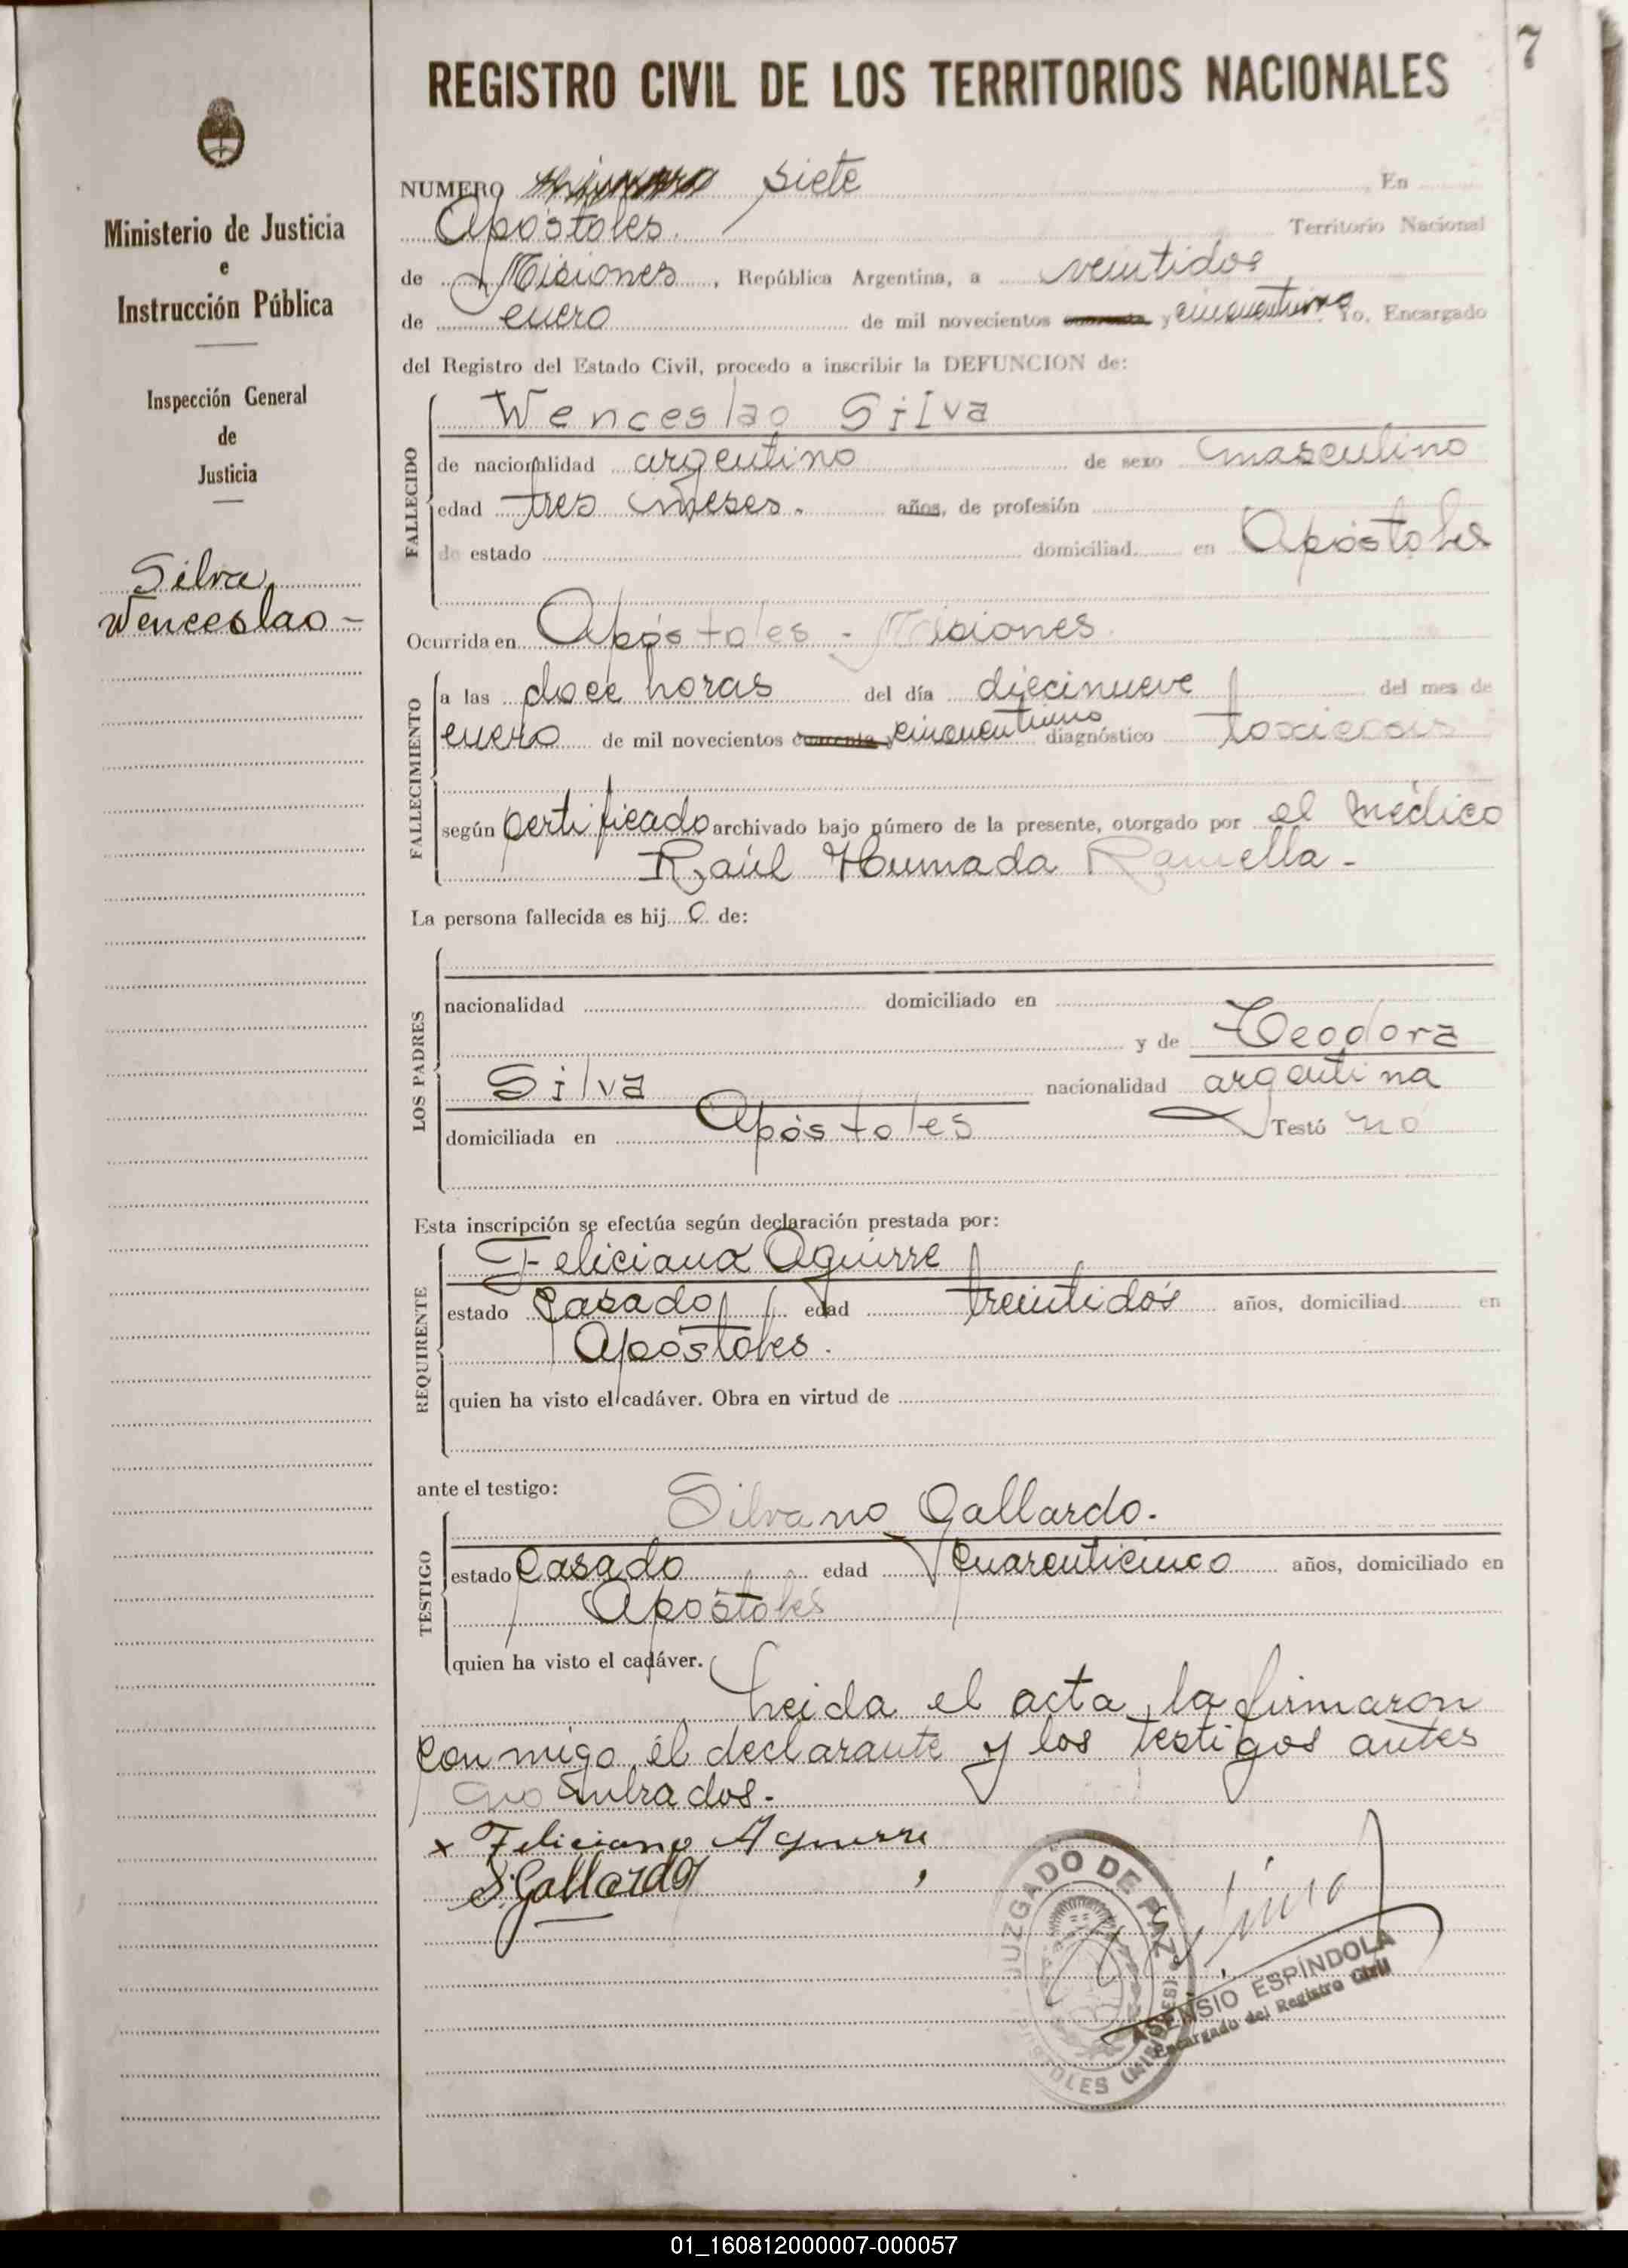 7
REGISTRO CIVIL DE LOS TERRITORIOS NACIONALES
Ministerio de Justicia
e
Instrucción Pública
Inspección General
de
Justicia
Silva
Wenceslao -
NUMERO siete En
Apóstoles. Territorio Nacional
de Misiones, República Argentina, a veintidos
de enero de mil novecientos y cincuentiuno Yo, Encargado
del Registro del Estado Civil, procedo a inscribir la DEFUNCION de:
FALLECIDO
Wenceslao Silva
de nacionalidad argentino de sexo masculino
edad tres meses. años, de profesión
de estado domiciliad en Apóstoles
Ocurrida en Apóstoles - Misiones
FALLECIMIENTO
a las doce horas del día diecinueve del mes de
enero de mil novecientos cuarenta y cincuentiuno diagnóstico
según certificado archivado bajo número de la presente, otorgado por el médico
Raúl Humada Ramella -
La persona fallecida es hijo de:
LOS PADRES
nacionalidad domiciliado en
y de Teodora
Silva nacionalidad argentina
domiciliada en Apóstoles Testó no
Esta inscripción se efectúa según declaración prestada por:
REQUIRENTE
Feliciano Aguirre
estado casado edad treintidós años, domiciliad en
Apóstoles.
quien ha visto el cadáver. Obra en virtud de
ante el testigo:
TESTIGO
Silvano Gallardo.
estado casado edad cuarenticinco años, domiciliado en
Apóstoles
quien ha visto el cadáver.
Leida el acta, la firmaron
conmigo el declarante y los testigos antes
nombrados.-
x Feliciano Aguirre
S. Gallardo
JUZGADO DE PAZ
APOSTOLES (MISIONES)
ASENSIO ESPÍNDOLA
Encargado del Registro Civil
01_160812000007-000057